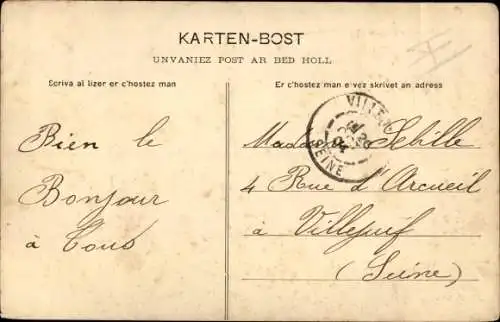 KARTEN-BOST
UNVANIEZ POST AR BED HOLL
Scriva al lizer er c'hostez man
Er c'hostez man e vez skrivet an adress
Bien le
Bonjour
à Tous
VILLEJ
SEINE
Madame Sebille
4 Rue d'Arcueil
à Villejuif
(Seine)